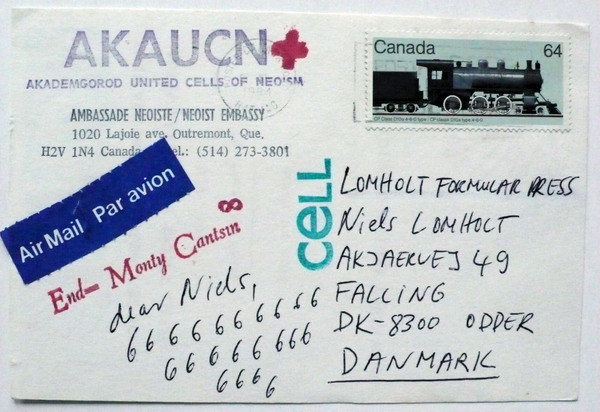 AKAUCN
AKADEMGOROD UNITED CELLS OF NEOISM
AMBASSADE NEOISTE/NEOIST EMBASSY
1020 Lajoie ave. Outremont, Que.
H2V 1N4 Canada Tel.: (514) 273-3801
Canada 64
CP Class D10a 4-6-0 type / CP classe D10a type 4-6-0
Air Mail Par avion
End= Monty Cantsin 8
cell
dear Niels,
6 6 6 6 6 6 6 6 6 6
6 6 6 6 6 6 6 6
6 6 6 6
LOMHOLT FORMULAR PRESS
Niels LOMHOLT
AKJAERVEJ 49
FALLING
DK-8300 ODDER
DANMARK